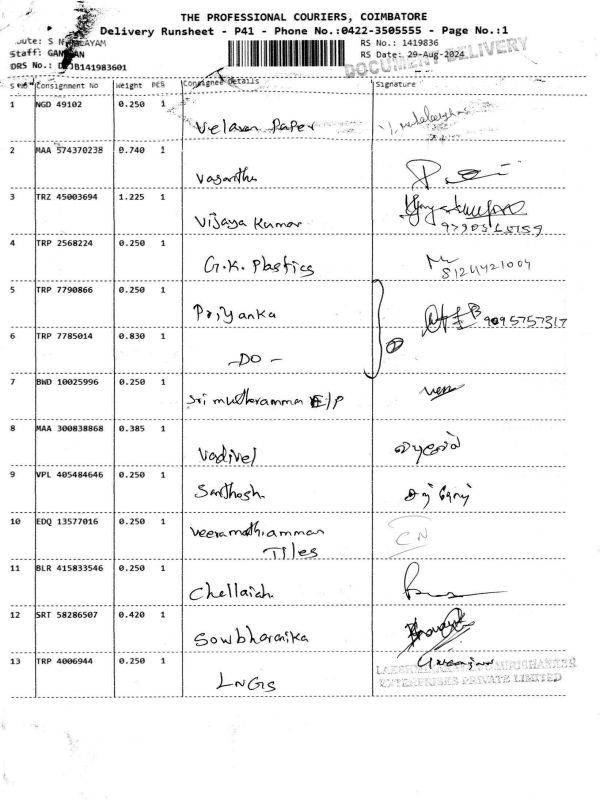 THE PROFESSIONAL COURIERS, COIMBATORE
Delivery Runsheet - P41 - Phone No.:0422-3505555 - Page No.:1
RS No.: 1419836
Staff:
RS Date: 29-Aug-2024
DRS No.:
DOCUMENT DELIVERY
Consignment No Weight PCS Consignee Details Signature
1 NGD 49102 0.250 1 Velavan Paper
2 MAA 574370238 0.740 1 Vasantha
3 TRZ 45003694 1.225 1 Vijaya Kumar
4 TRP 2568224 0.250 1 G.K. Plastics
8124421004
5 TRP 7790866 0.250 1 Priyanka
9095757317
6 TRP 7785014 0.830 1 -DO-
7 BWD 10025996 0.250 1 Sri mutharamman E/P
8 MAA 300838868 0.385 1 Vadivel
9 VPL 405484646 0.250 1 Santhosh
10 EDQ 13577016 0.250 1 Veeramathiamman CN
Tiles
11 BLR 415833546 0.250 1 Chellaiah
12 SRT 58286507 0.420 1 Sowbharnika
13 TRP 4006944 0.250 1 LNGS
ENTERPRISES PRIVATE LIMITED